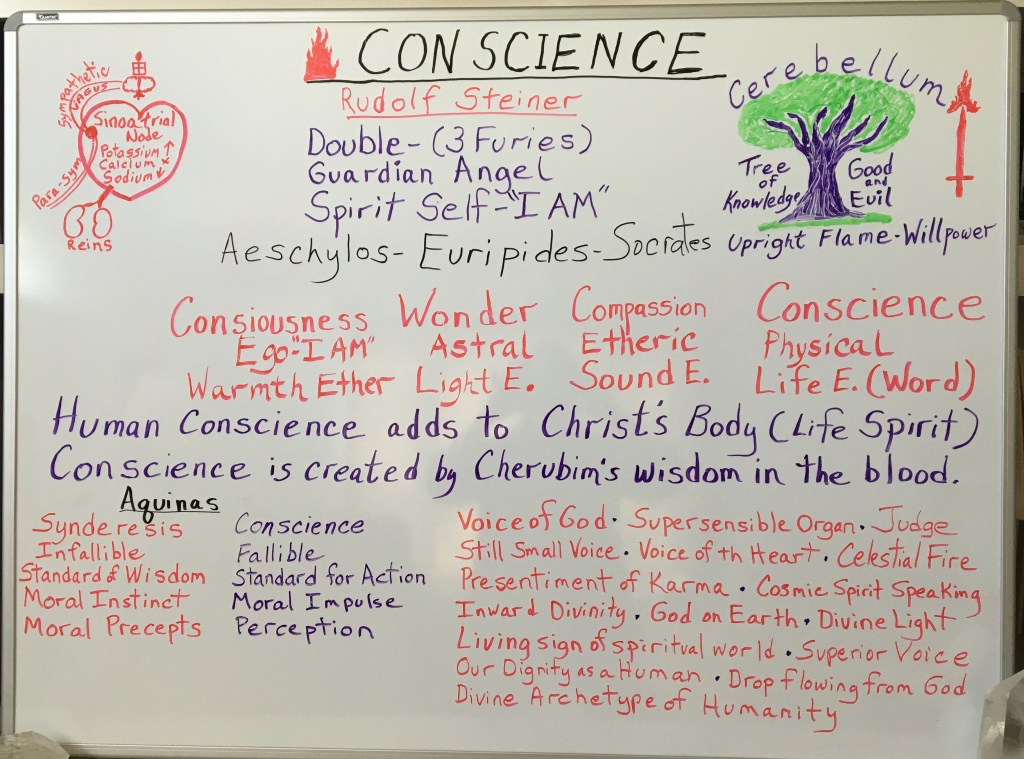 CONSCIENCE
Rudolf Steiner
Double- (3 Furies)
Guardian Angel
Spirit Self-"I AM"
Aeschylos- Euripides- Socrates
Sympathetic
Vagus
Sinoatrial
Node
Potassium ↑
Calcium
Sodium
Para-Sym
Reins
Cerebellum
Tree of Knowledge
Good and Evil
Upright Flame-Willpower
Consiousness Wonder Compassion Conscience
Ego-"I AM" Astral Etheric Physical
Warmth Ether Light E. Sound E. Life E. (Word)
Human Conscience adds to Christ's Body (Life Spirit)
Conscience is created by Cherubim's wisdom in the blood.
Aquinas
Synderesis Conscience
Infallible Fallible
Standard of Wisdom Standard for Action
Moral Instinct Moral Impulse
Moral Precepts Perception
Voice of God · Supersensible Organ · Judge
Still Small Voice · Voice of th Heart · Celestial Fire
Presentiment of Karma · Cosmic Spirit Speaking
Inward Divinity · God on Earth · Divine Light
Living sign of spiritual world · Superior Voice
Our Dignity as a Human · Drop flowing from God
Divine Archetype of Humanity